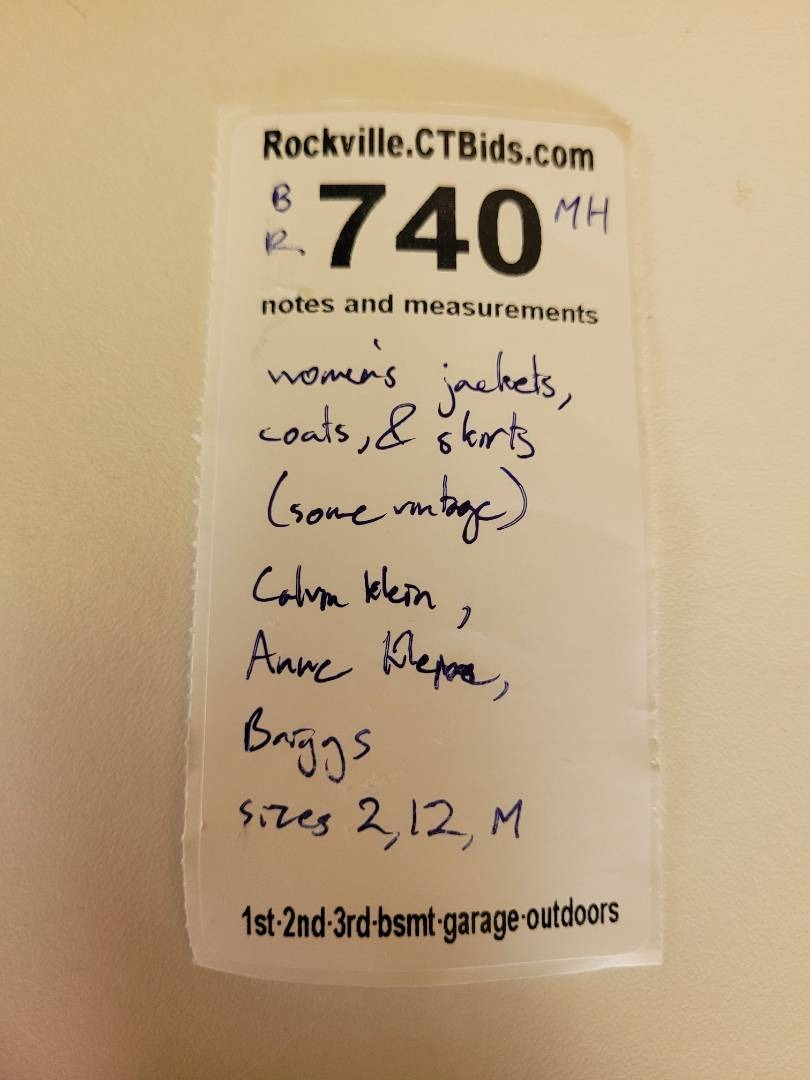 Rockville.CTBids.com
B R 740 MH
notes and measurements
women's jackets,
coats, & skirts
(some vintage)
Calvin Klein,
Anne
Briggs
sizes 2, 12, M
1st·2nd·3rd·bsmt·garage·outdoors